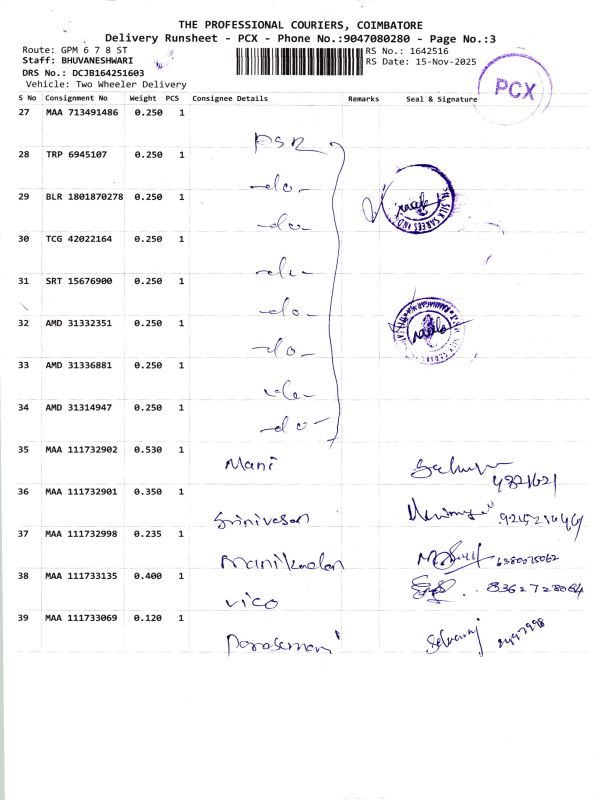 THE PROFESSIONAL COURIERS, COIMBATORE
Delivery Runsheet - PCX - Phone No.:9047080280 - Page No.:3
Route: GPM 6 7 8 ST
RS No.: 1642516
Staff: BHUVANESHWARI
RS Date: 15-Nov-2025
DRS No.: DCJB164251603
Vehicle: Two Wheeler Delivery
PCX
S No Consignment No Weight PCS Consignee Details Remarks Seal & Signature
27 MAA 713491486 0.250 1 PSR
28 TRP 6945107 0.250 1 -do-
29 BLR 1801870278 0.250 1 -do-
30 TCG 42022164 0.250 1 -do-
31 SRT 15676900 0.250 1 -do-
32 AMD 31332351 0.250 1 -do-
33 AMD 31336881 0.250 1 -do-
34 AMD 31314947 0.250 1 -do-
35 MAA 111732902 0.530 1 Mani
36 MAA 111732901 0.350 1 Srinivasan
37 MAA 111732998 0.235 1 Manikandan 6380075062
38 MAA 111733135 0.400 1 Vico 8362728064
39 MAA 111733069 0.120 1